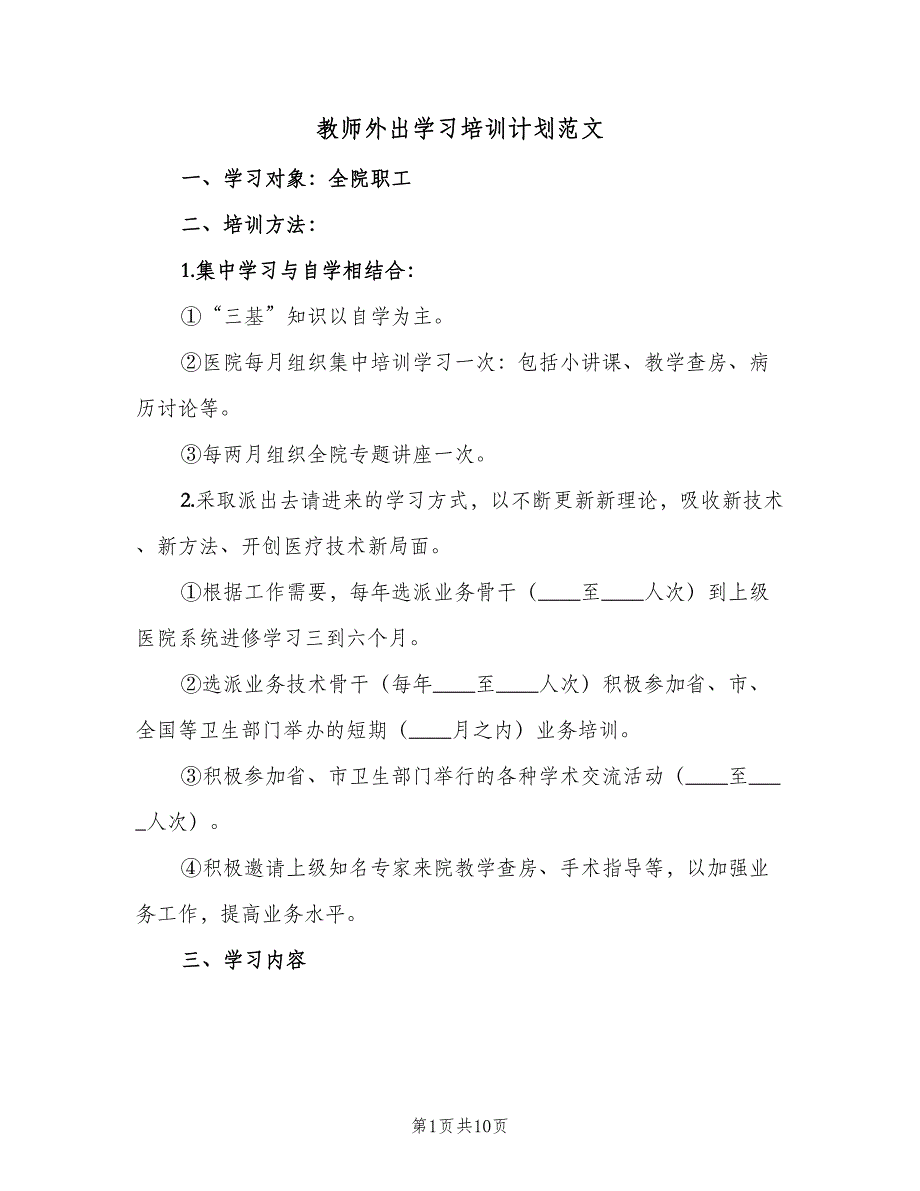 教师外出学习培训计划范文
一、学习对象：全院职工
二、培训方法：
1.集中学习与自学相结合：
①“三基”知识以自学为主。
②医院每月组织集中培训学习一次：包括小讲课、教学查房、病
历讨论等。
③每两月组织全院专题讲座一次。
2.采取派出去请进来的学习方式，以不断更新新理论，吸收新技术
、新方法、开创医疗技术新局面。
①根据工作需要，每年选派业务骨干（____至____人次）到上级
医院系统进修学习三到六个月。
②选派业务技术骨干（每年____至____人次）积极参加省、市、
全国等卫生部门举办的短期（____月之内）业务培训。
③积极参加省、市卫生部门举行的各种学术交流活动（____至___
_人次）。
④积极邀请上级知名专家来院教学查房、手术指导等，以加强业
务工作，提高业务水平。
三、学习内容
第1页共10页